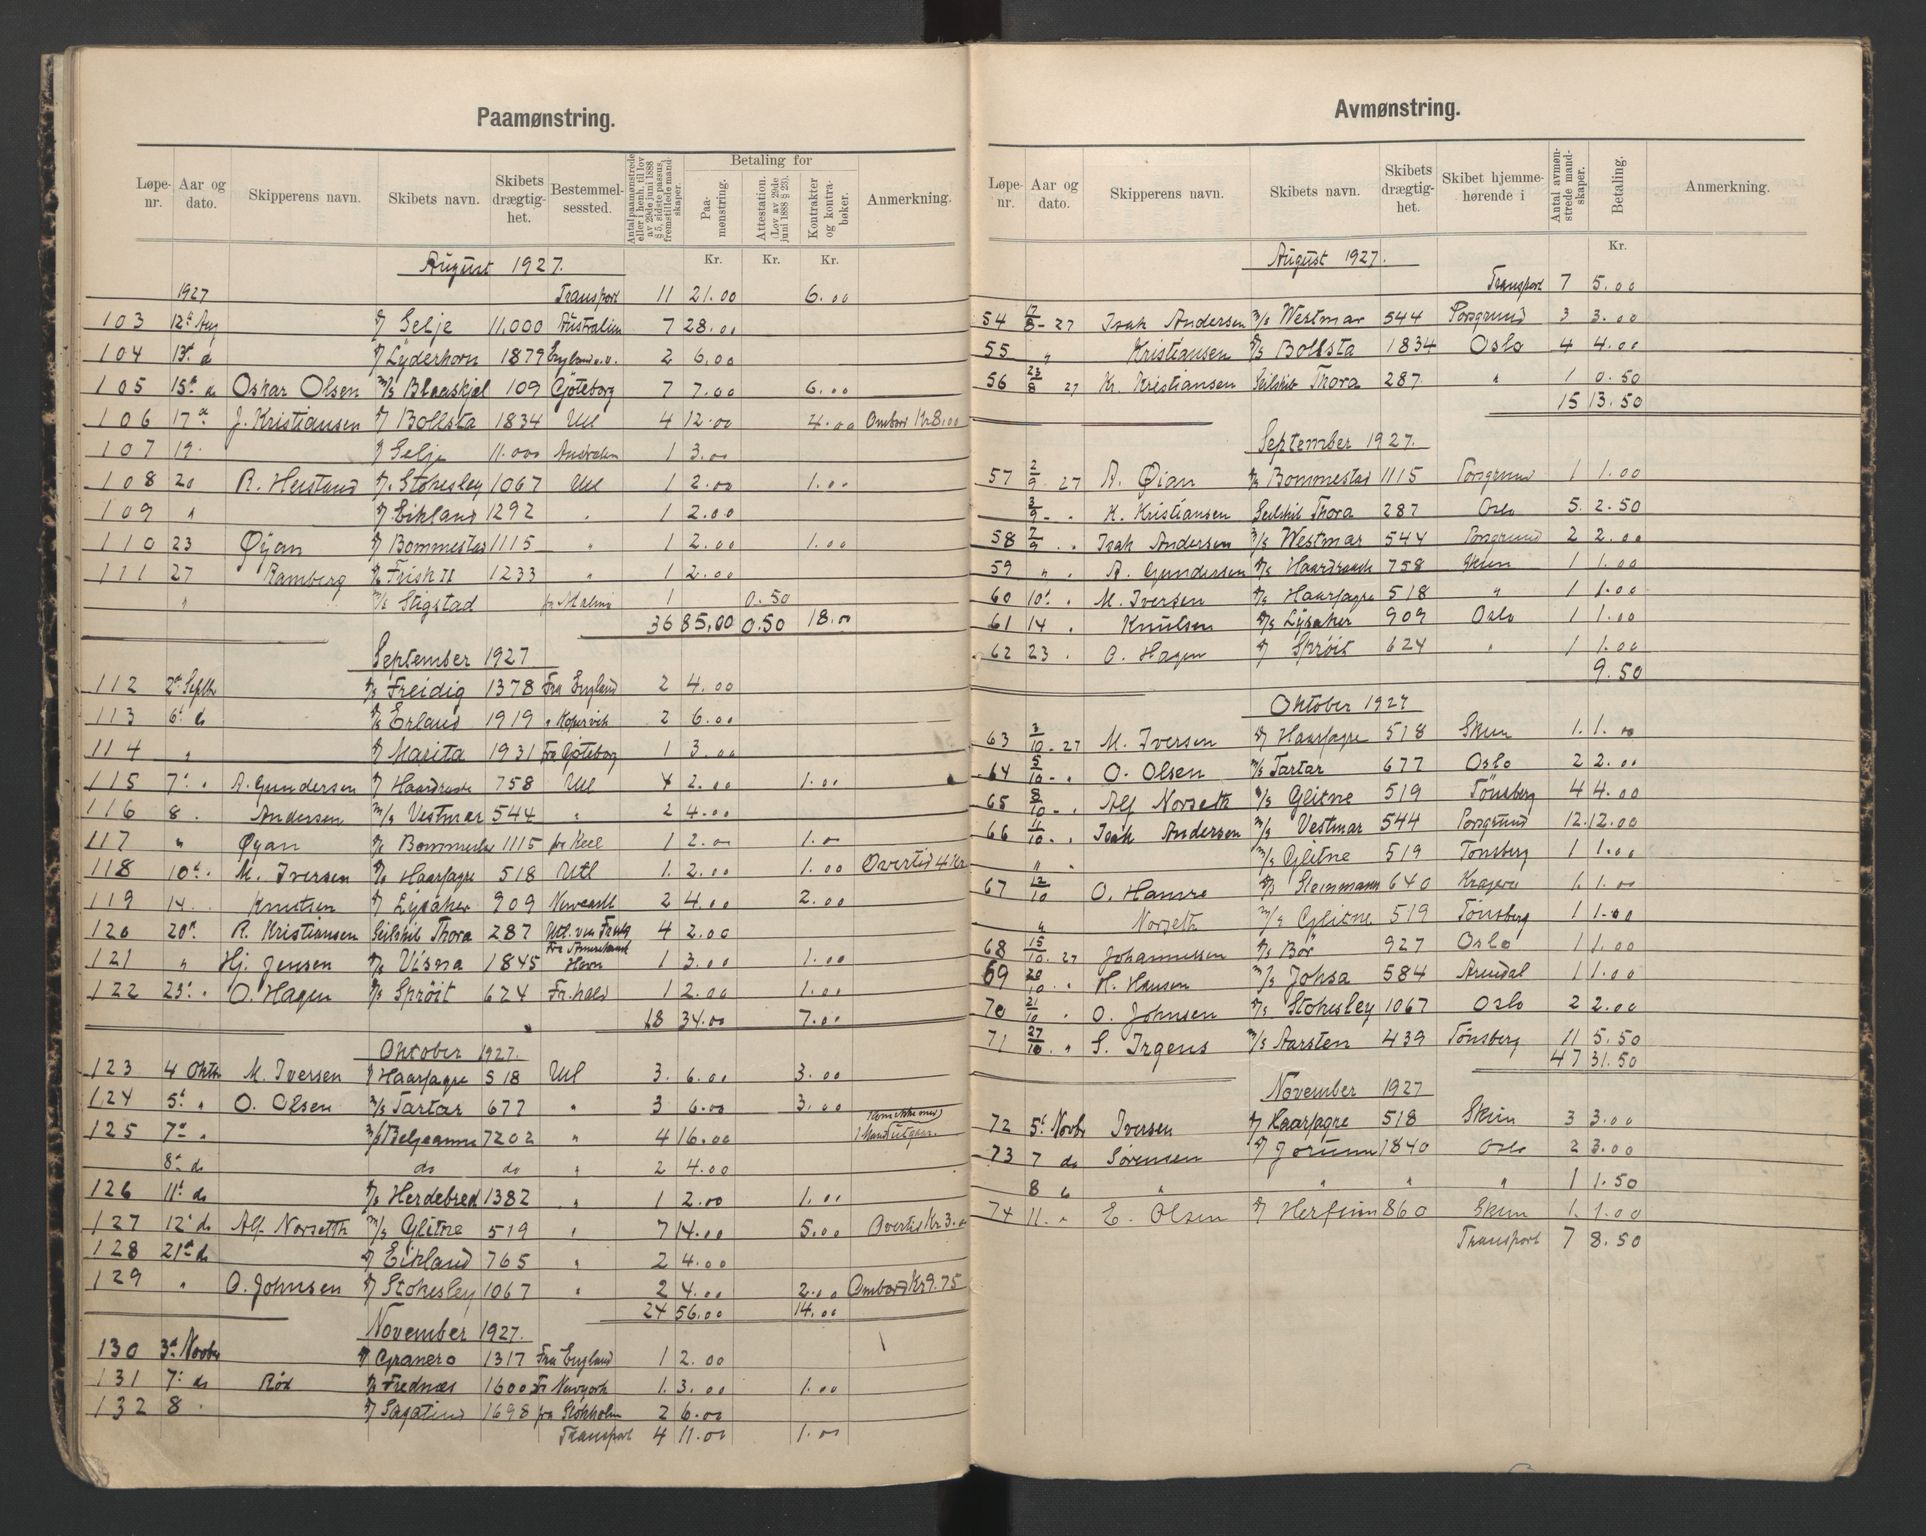 Paamønstring.
Løpe-nr. Aar og dato. Skipperens navn. Skibets navn. Skibets drægtighet. Bestemmelsessted. Antal paamønstrede eller i henh. til lov av 29de juni 1888 § 5, sidste passus, fremstillede mandskaper. Betaling for Paamønstring. Attestation. (Lov av 29de juni 1888 § 23). Kontrakter og kontrabøker. Anmerkning.
Kr. Kr. Kr.
August 1927.
1927 Transport 11 21.00 6.00
103 12te Aug s/s Selje 11,000 Australien 7 28.00
104 13de d s/s Lyderhorn 1879 England o.v. 2 6.00
105 15de do Oskar Olsen m/s Blaaskjæl 109 Gøteborg 7 7.00 6.00
106 17de J. Kristiansen s/s Bollsta 1834 Utl 4 12.00 4.00 Ombord Kr 8.00
107 19. s/s Selje 11.000 Australien 1 3.00
108 20 R. Heistand s/s Stokesley 1067 Utl 1 2.00 1.00
109 " s/s Eikland 1292 " 1 2.00
110 23 Øyan s/s Bommestad 1115 " 1 2.00 1.00
111 27 Ramberg s/s Frisk II 1233 " 1 2.00
" m/s Stigstad fr Malmø 1 0.50
36 85.00 0.50 18.00
September 1927
112 2de Septbr s/s Freidig 1378 Fra England 2 4.00
113 6te do s/s Erland 1919 " Kopervik 2 6.00
114 " s/s Marita 1931 Fra Gøteborg 1 3.00
115 7de " A. Gundersen s/s Haardraade 758 Utl 4 2.00 1.00
116 8 . Andersen m/s Vestmar 544 " 2 4.00
117 " Øyan s/s Bommestad 1115 fr Keel 1 2.00 1.00
118 10de . M. Iversen s/s Haarfagre 518 Utl 1. 2.00 1.00 Overtid 4 Kr
119 14 . Knutsen s/s Lysaker 909 Newcastle 2 4.00 2.00
120 20de R. Kristiansen Seilskib Thora 287 Utl. 4 2.00
121 " Hj. Jensen s/s Visna 1845 Fra Amerikansk Havn 1 3.00 1.00
122 23de . O. Hagen s/s Sprøit 624 Fr. hald 1 2.00 1.00
18 34.00 7.00
Oktober 1927.
123 4 Oktbr M. Iversen s/s Haarfagre 518 Utl 3. 6.00 3.00
124 5te " O. Olsen m/s Tartar 677 " 3 6.00 3.00
125 7de " m/s Beljeanne 7202 " 4 16.00
8de do do do " 2 4.00
126 11te do s/s Herdebred 1382 " 1 2.00 1.00
127 12te do Alf Norseth m/s Glitne 519 " 7 14.00 5.00 Overtid Kr 3.00
128 21de do s/s Eikland 765 " 2 4.00
129 " O. Johnsen s/s Stokesley 1067 " 2 4.00 2.00 Ombord Kr 9.75
24 56.00 14.00
November 1927.
130 3de Novbr s/s Granero 1317 Fra England 1 2.00
131 7de do Rød s/s Frednæs 1600 Fr Newyork 1. 3.00 1.00
132 8 . s/s Sagatind 1698 fra Stokholm 2 6.00
Transport 4 11.00 1.00
Avmønstring.
Løpe-nr. Aar og dato. Skipperens navn. Skibets navn. Skibets drægtighet. Skibet hjemmehørende i Antal avmønstrede mandskaper. Betaling. Anmerkning.
Kr.
August 1927.
Transport 7 5.00
54 17/8-27 Isak Andersen m/s Westmar 544 Porsgrund 3 3.00
55 " Kristiansen s/s Bollsta 1834 Oslo 4 4.00
56 23/8 27 Kr. Kristiansen Seilskib Thora 287 " 1 0.50
15 13.50
September 1927.
57 2/9 27 A. Øian s/s Bommestad 1115 Porsgrund 1 1.00
3/9 - . K. Kristiansen Seilskib Thora 287 Oslo 5. 2.50
58 7/9 . Isak Andersen m/s Westmar 544 Porsgrund 2 2.00
59 " " A. Gundersen s/s Haardraade 758 Skien 1 1.00
60 10de . M. Iversen s/s Haarfagre 518 " 1 1.00
61 14 . Knutsen s/s Lysaker 909 Oslo 1 1.00
62 23 . O. Hagen s/s Sprøit 624 " 1 1.00
9.50
Oktober 1927
63 3/10-27 M. Iversen s/s Haarfagre 518 Skien 1. 1.00
64 5/10-. O. Olsen m/s Tartar 677 Oslo 2 2.00
65 8/10-. Alf Norseth m/s Glitne 519 Tönsberg 4 4.00
66 11/10-. Isak Andersen m/s Vestmar 544 Porsgrund 12. 12.00
" . m/s Glitne 519 Tönsberg 1 1.00
67 12/10 O. Hamre s/s Steinmann 640 Kragerø 1. 1.00
" Norseth m/s Glitne 519 Tönsberg 1 1.00
68 15/10.27 Johannessen s/s Bør 927 Oslo 1 1.00
69 20/10 . H. Hansen m/s Johsa 584 Arendal 1 1.00
70 21/10 . O. Johnsen s/s Stokesley 1067 Oslo 2 2.00
71 27/10 " S. Irgens m/s Aarsten 439 Tönsberg 11 5.50
47 31.50
November 1927
72 5te Novbr Iversen s/s Haarfagre 518 Skien 3 3.00
73 7 do Sørensen s/s Jorunn 1840 Oslo 2 3.00
8 " " " " " 1 1.50
74 11. " E. Olsen s/s Herfinn 860 Skien 1. 1.00
Transport 7 8.50